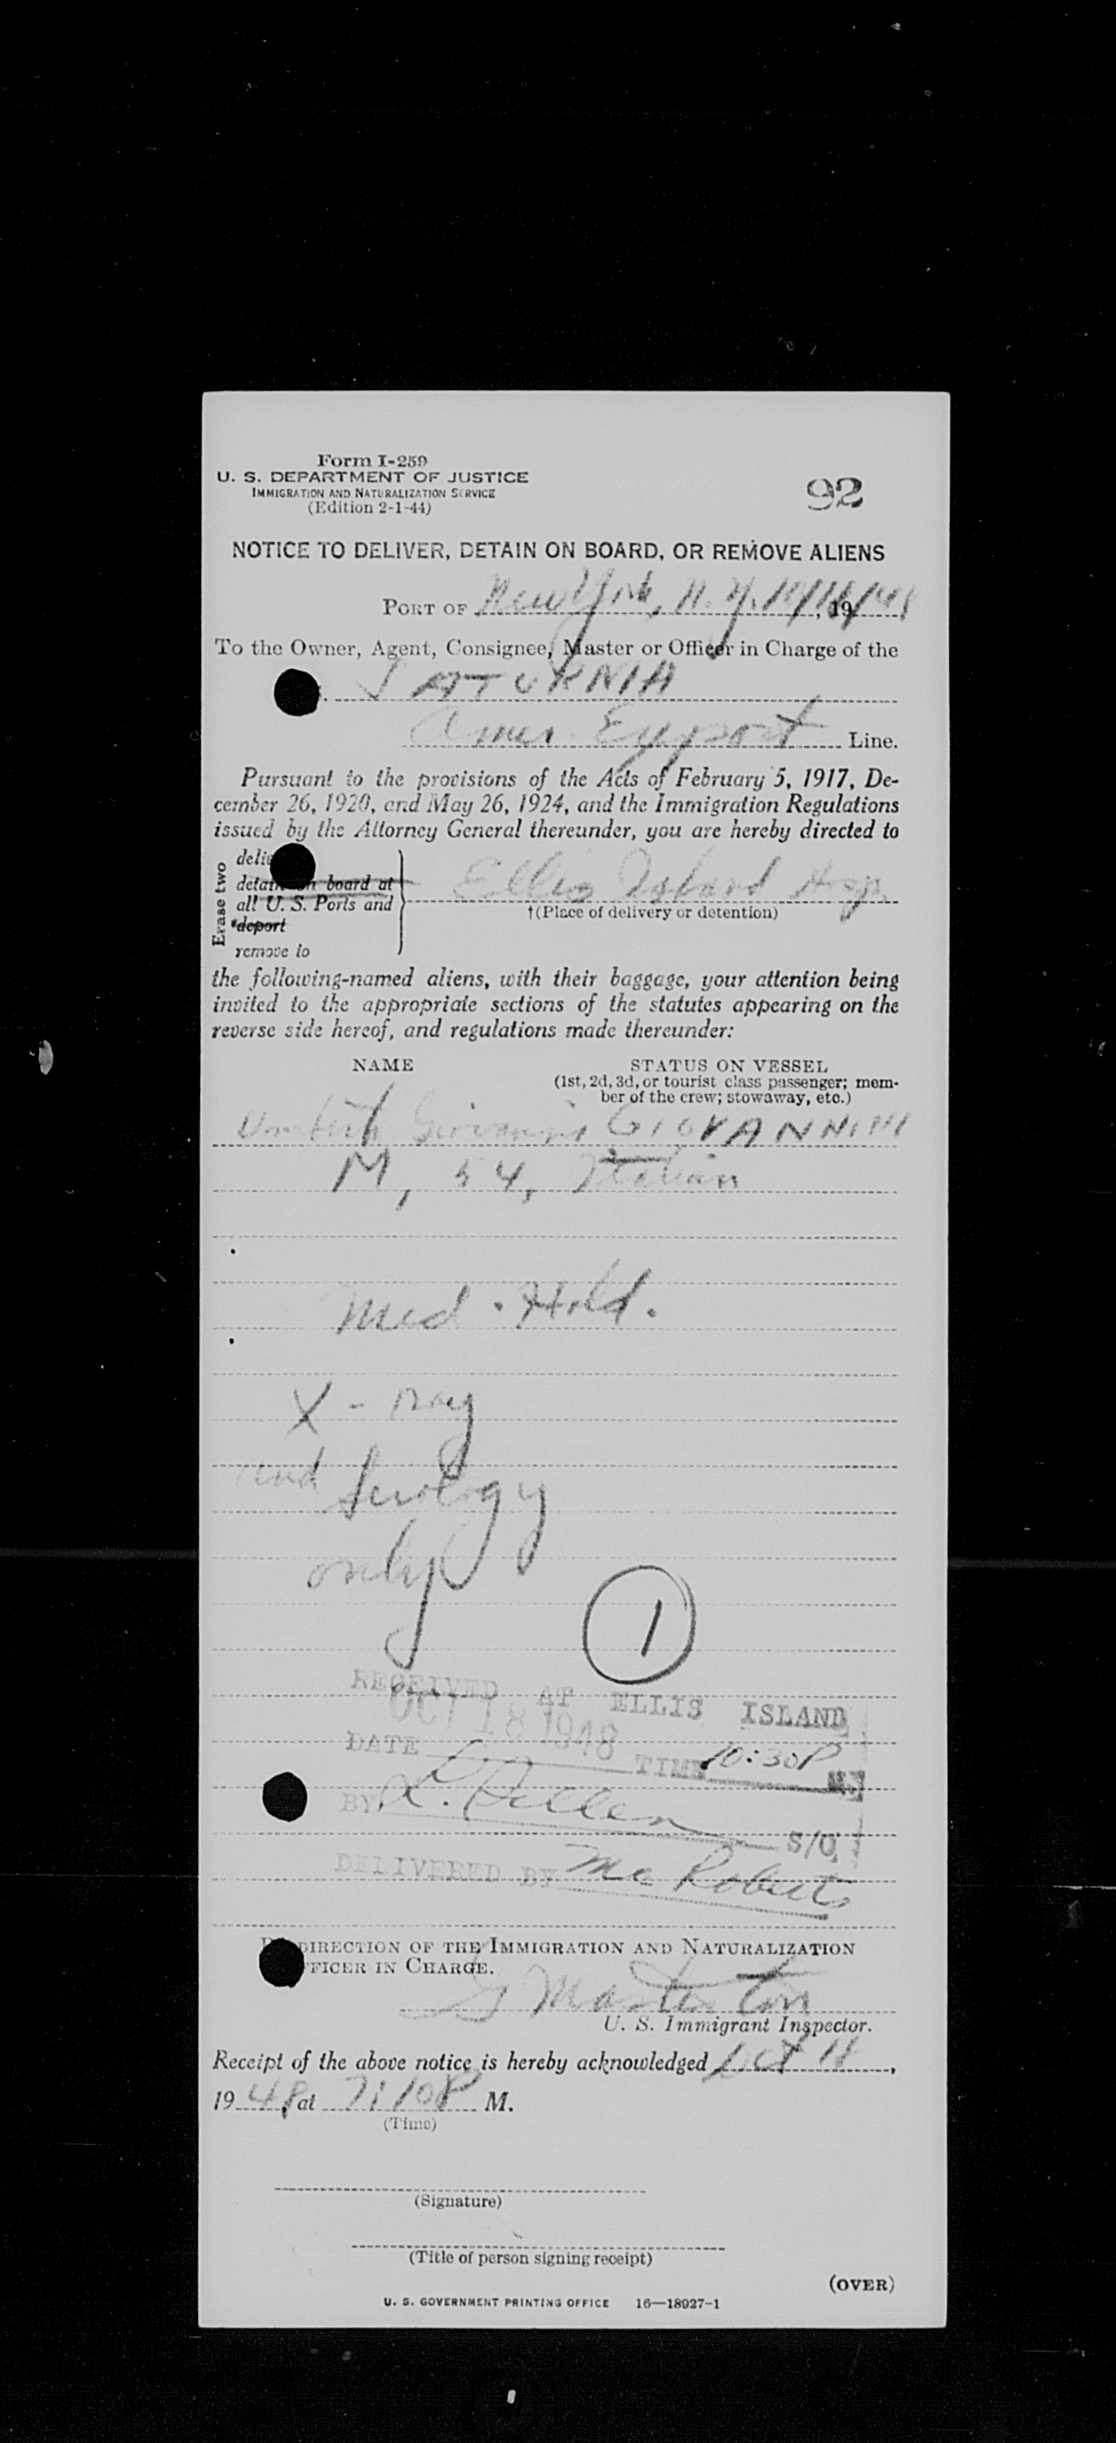 Form I-259
U. S. DEPARTMENT OF JUSTICE
IMMIGRATION AND NATURALIZATION SERVICE
(Edition 2-1-44)
92
NOTICE TO DELIVER, DETAIN ON BOARD, OR REMOVE ALIENS
PORT OF New York, N. Y. , 19
To the Owner, Agent, Consignee, Master or Officer in Charge of the
SATURNIA
Amer Export Line.
Pursuant to the provisions of the Acts of February 5, 1917, De-
cember 26, 1920, and May 26, 1924, and the Immigration Regulations
issued by the Attorney General thereunder, you are hereby directed to
Erase two
detain on board at
all U. S. Ports and
*deport
remove to
Ellis Island
†(Place of delivery or detention)
the following-named aliens, with their baggage, your attention being
invited to the appropriate sections of the statutes appearing on the
reverse side hereof, and regulations made thereunder:
NAME STATUS ON VESSEL
(1st, 2d, 3d, or tourist class passenger; mem-
ber of the crew; stowaway, etc.)
GIOVANNINI
M, 54, Italian
Med. Hold.
X-ray
and Serology
only
1
RECEIVED AT ELLIS ISLAND
OCT 18 1948
DATE TIME 10:30P M
BY S/O
DELIVERED BY Mc Roberts
DIRECTION OF THE IMMIGRATION AND NATURALIZATION
OFFICER IN CHARGE.
U. S. Immigrant Inspector.
Receipt of the above notice is hereby acknowledged Oct ,
19 48, at 7:10P M.
(Time)
(Signature)
(Title of person signing receipt)
(OVER)
U. S. GOVERNMENT PRINTING OFFICE 16—18927-1